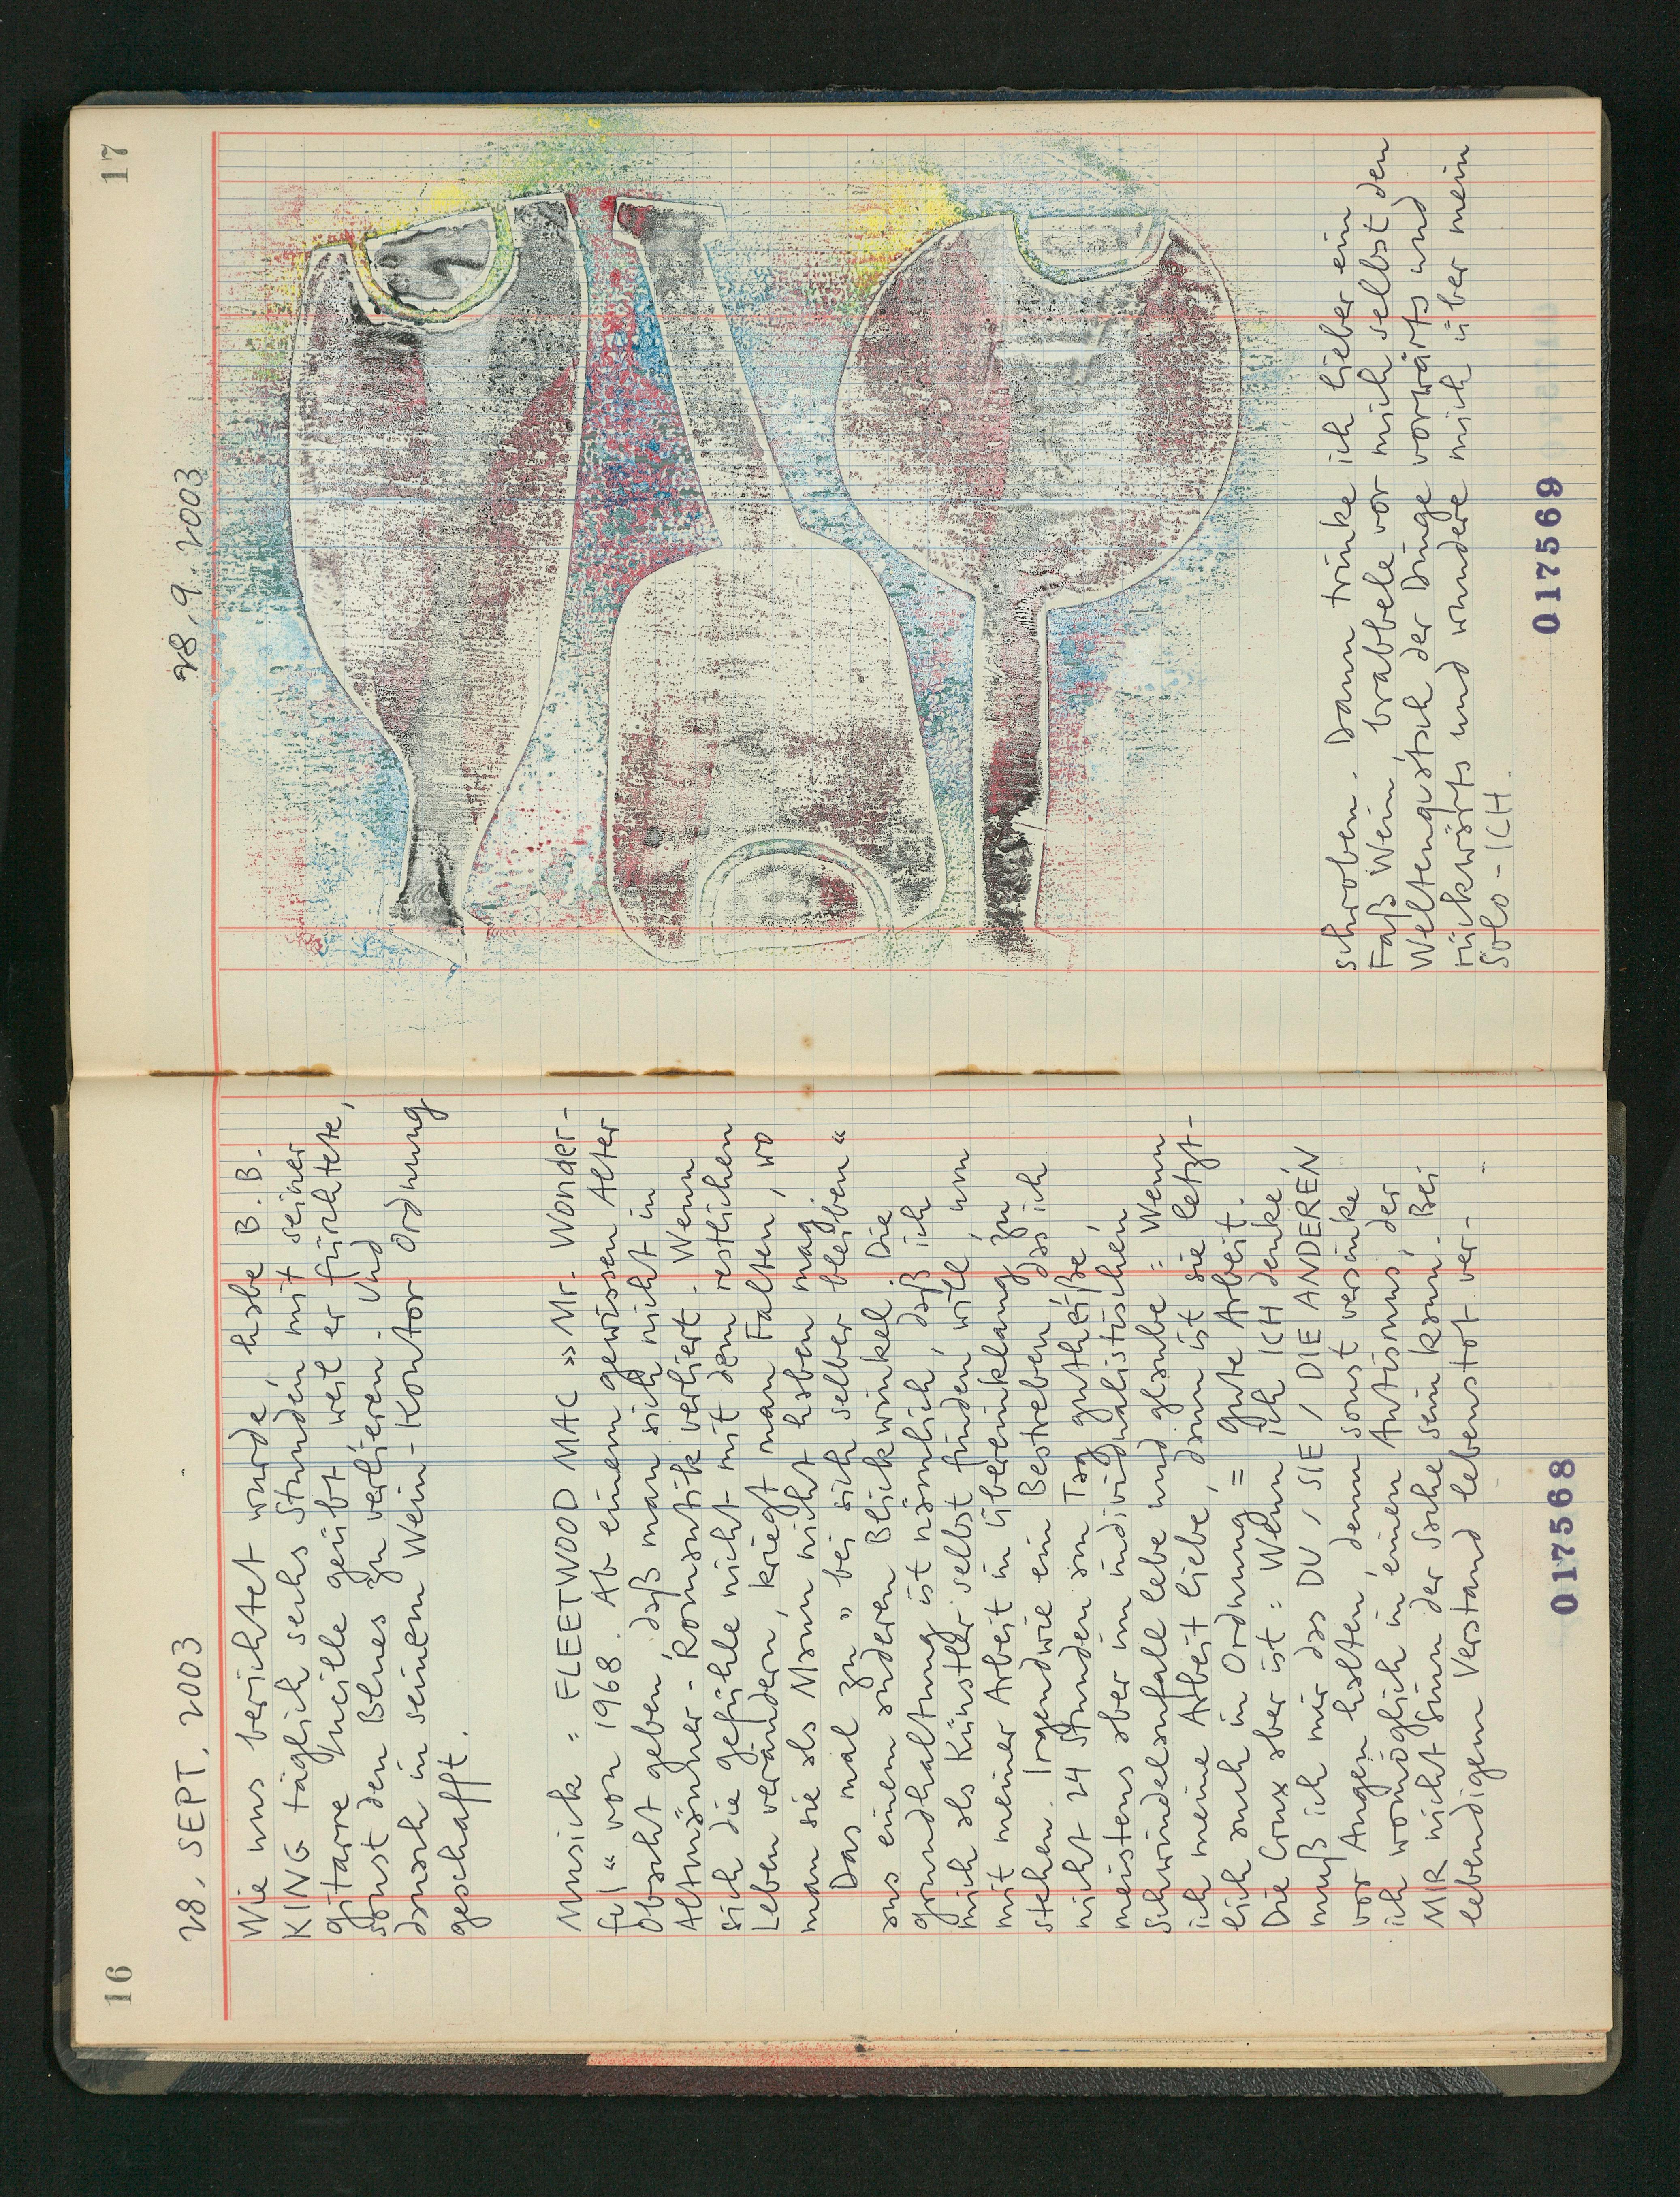 16
28. SEPT. 2003
Wie uns berichtet wurde, habe B. B.
KING täglich sechs Stunden mit seiner
Gitarre Lucille geübt, weil er fürchtete,
sonst den Blues zu verlieren. Und
danach in seinem Wein-Kontor Ordnung
geschafft.
Musick: FLEETWOOD MAC »Mr. Wonder-
ful“ von 1968. Ab einem gewissen Alter
Obacht geben, daß man sich nicht in
Altmänner-Romantik verliert. Wenn
sich die Gefühle nicht mit dem restlichen
Leben verändern, kriegt man Falten, wo
man sie als Mann nicht haben mag.
Das mal zu »bei sich selber bleiben“
aus einem anderen Blickwinkel. Die
Grundhaltung ist nämlich, daß ich
mich als Künstler selbst finden will, um
mit meiner Arbeit in Übereinklang zu
stehen. Irgendwie ein Bestreben, das ich
nicht 24 Stunden am Tag gutheiße,
meistens aber im individualistischen
Schwindelanfall lebe und glaube: Wenn
ich meine Arbeit liebe, dann ist sie letzt-
lich auch in Ordnung, = gute Arbeit.
Die Crux aber ist: Wenn ich ICH denke,
muß ich mir das DU / SIE / DIE ANDEREN
vor Augen halten, denn sonst versinke
ich womöglich in einem Autismus, der
MIR nicht Sinn der Sache sein kann. Bei
lebendigem Verstand lebenstot ver-
017568
17
28. 9. 2003
schroben. Dann trinke ich lieber ein
Faß Wein, brabbele vor mich selbst den
Weltenquatsch der Dinge vorwärts und
rückwärts und wundere mich über mein
Solo-ICH.
017569